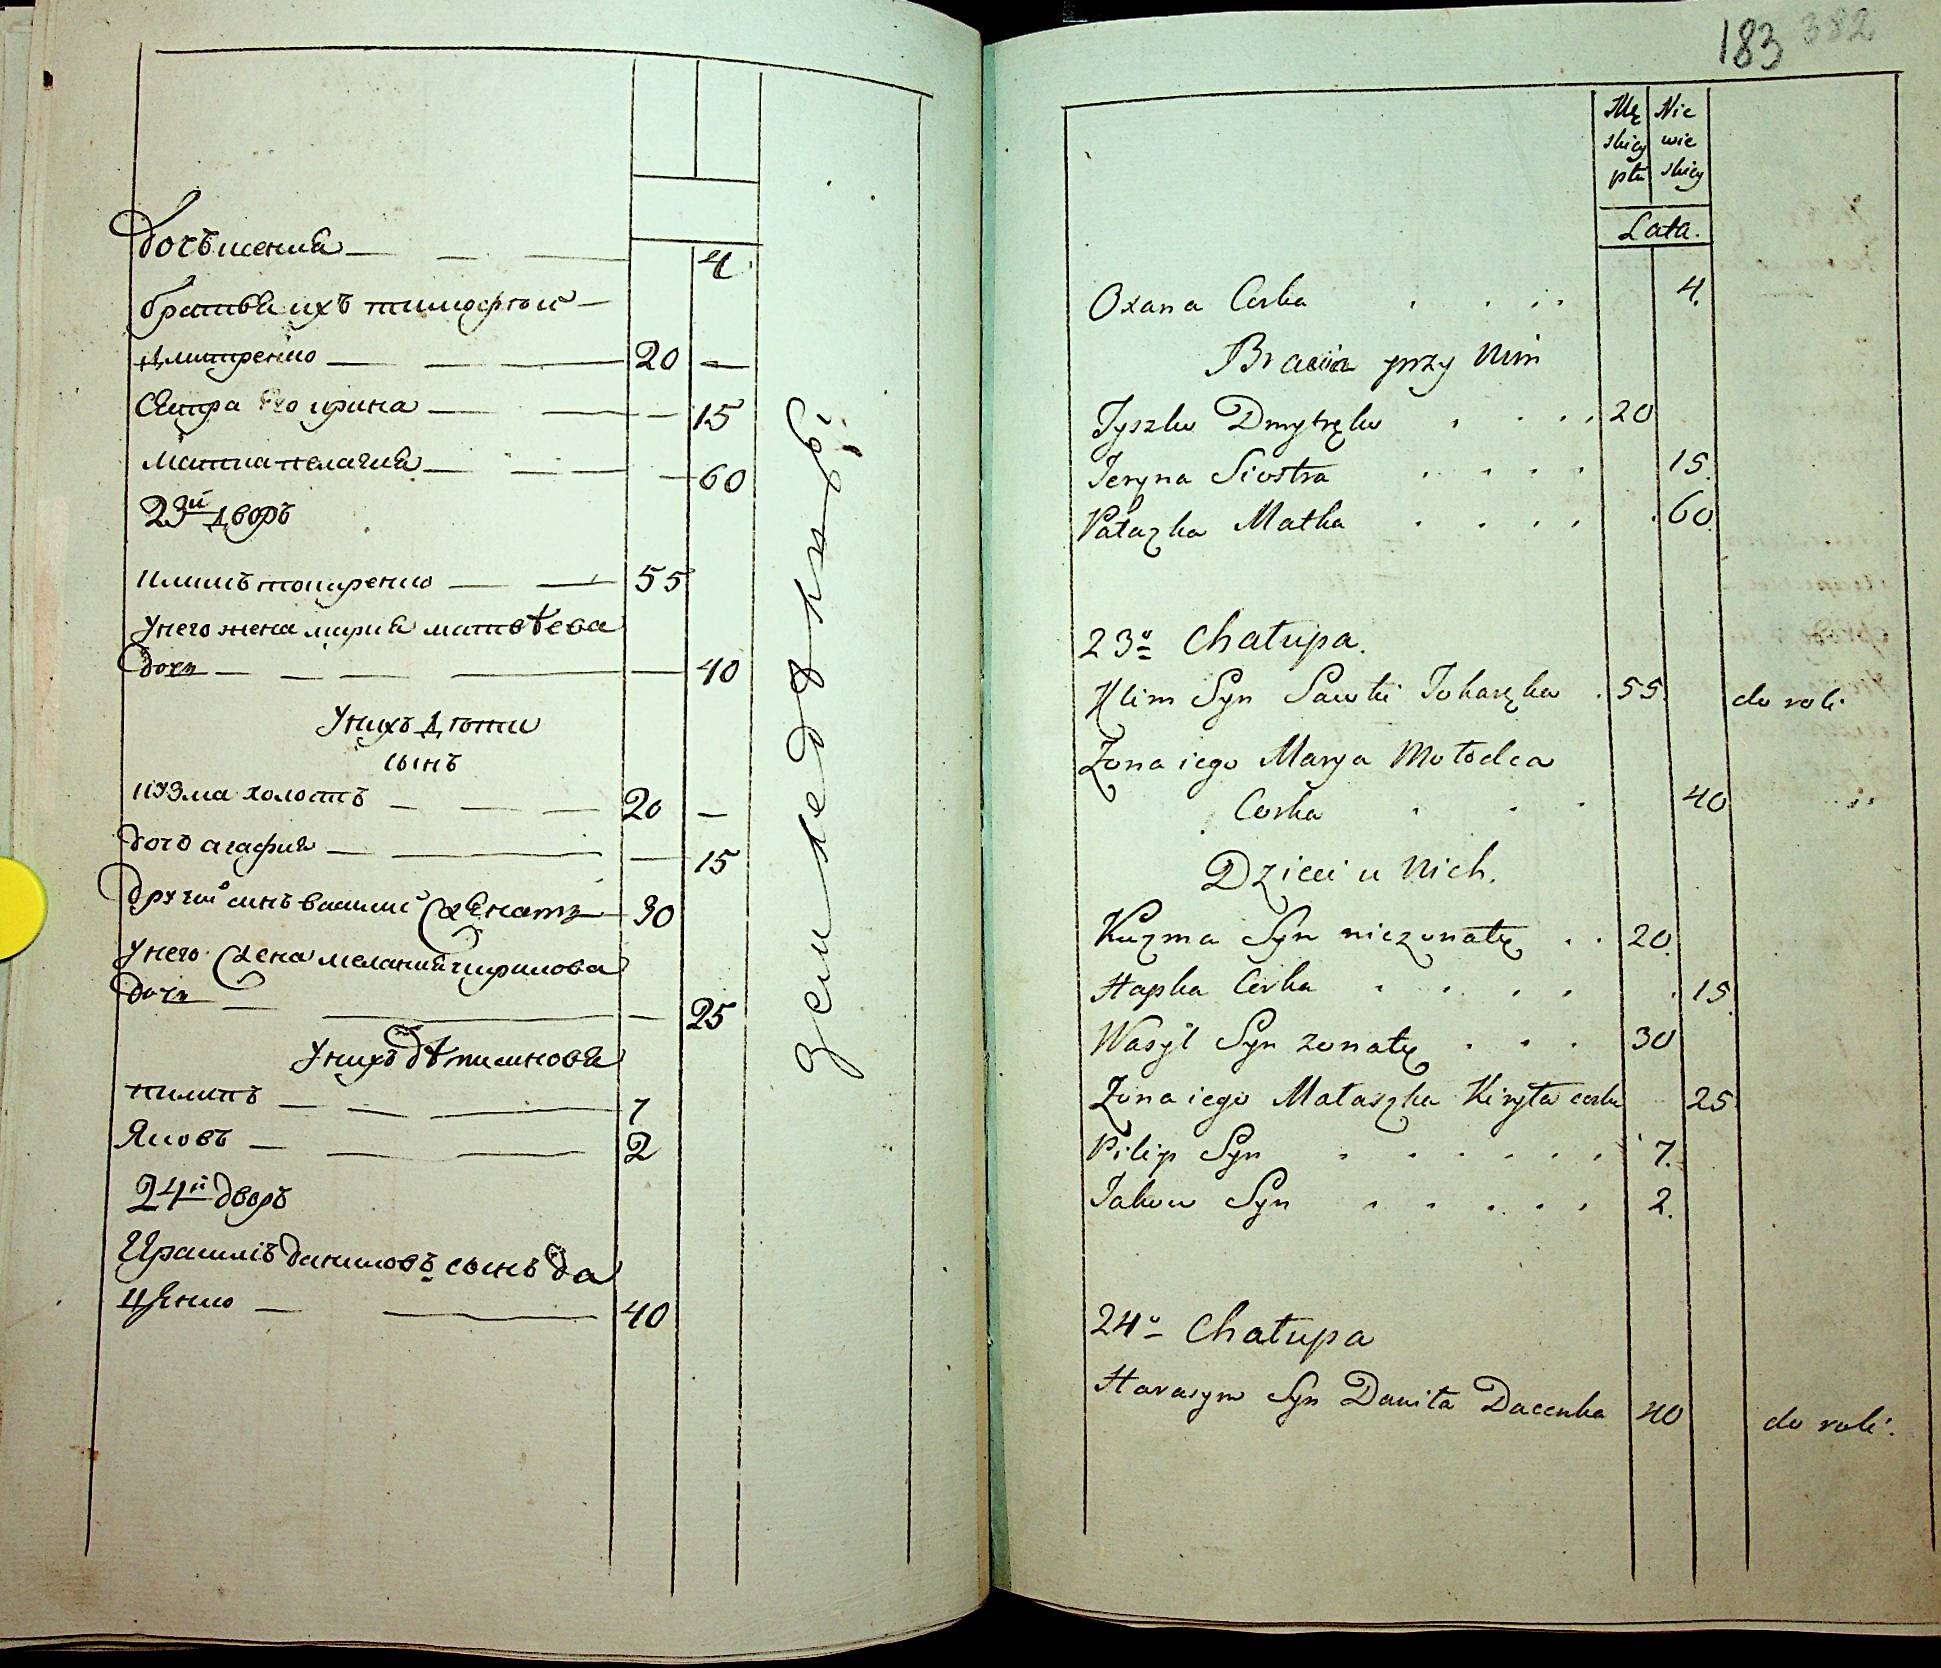 дочь ксения 4
братъ ихъ тимофѣй
дмитренко 20 —
сестра его ирина 15
матка пелагия 60
23й дворъ
климъ токаренко 55
у него жена мария матвѣева
дочь 40
у нихъ дѣти
сынъ
кузма холостъ 20 —
дочь агафия 15
другий синъ василий женатъ 30
у него жена мелания кирилова
дочь 25
у нихъ дѣти синовя
пилипъ 7
Яковъ 2
24й дворъ
Ирасимъ даниловъ сынъ да
ценко 40
земледѣлцы
183 382
Mę Nie
skiey wie
płci skiey
Lata.
Oxana Corka 4.
Bracia przy Nim
Tyszko Dmytręko 20
Jeryna Siostra 15.
Pałazka Matka 60.
23a Chałupa.
Klim Syn Sawki Tokaręka 55. do roli.
Zona iego Marya Motodca
Corka 40
Dzieci u Nich.
Kuzma Syn niezonaty 20.
Hapka Corka 15.
Wasyl Syn zonaty 30
Zona iego Małaszka Kiryła corka 25.
Pilip Syn 7.
Jakow Syn 2.
24a Chałupa
Harasym Syn Daniła Dacenka 40 do roli.